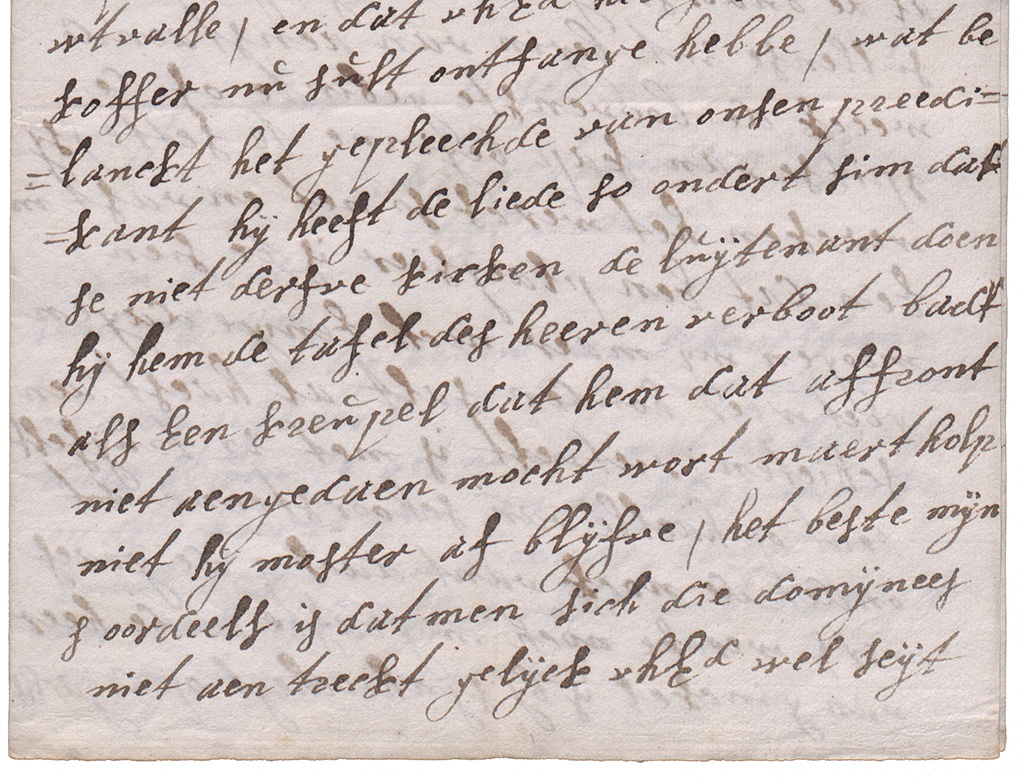 wtvalle / en dat vhEd
koffer nú súlt ontfange hebbe / wat be
=lanckt het gepleechde van onsen preedi=
=kant hÿ heeft de liede so ondert sim dat
se niet derfve kicken de lúÿtenant doen
hÿ hem de tafel des heeren verboot badt
als een kreúpel dat hem dat affront
niet aengedaen mocht wort maert holp
niet hÿ moster af blÿfve / het beste mÿn
s oordeels is dat men sich die domÿnees
niet aen treckt gelÿck vhEd wel seÿt